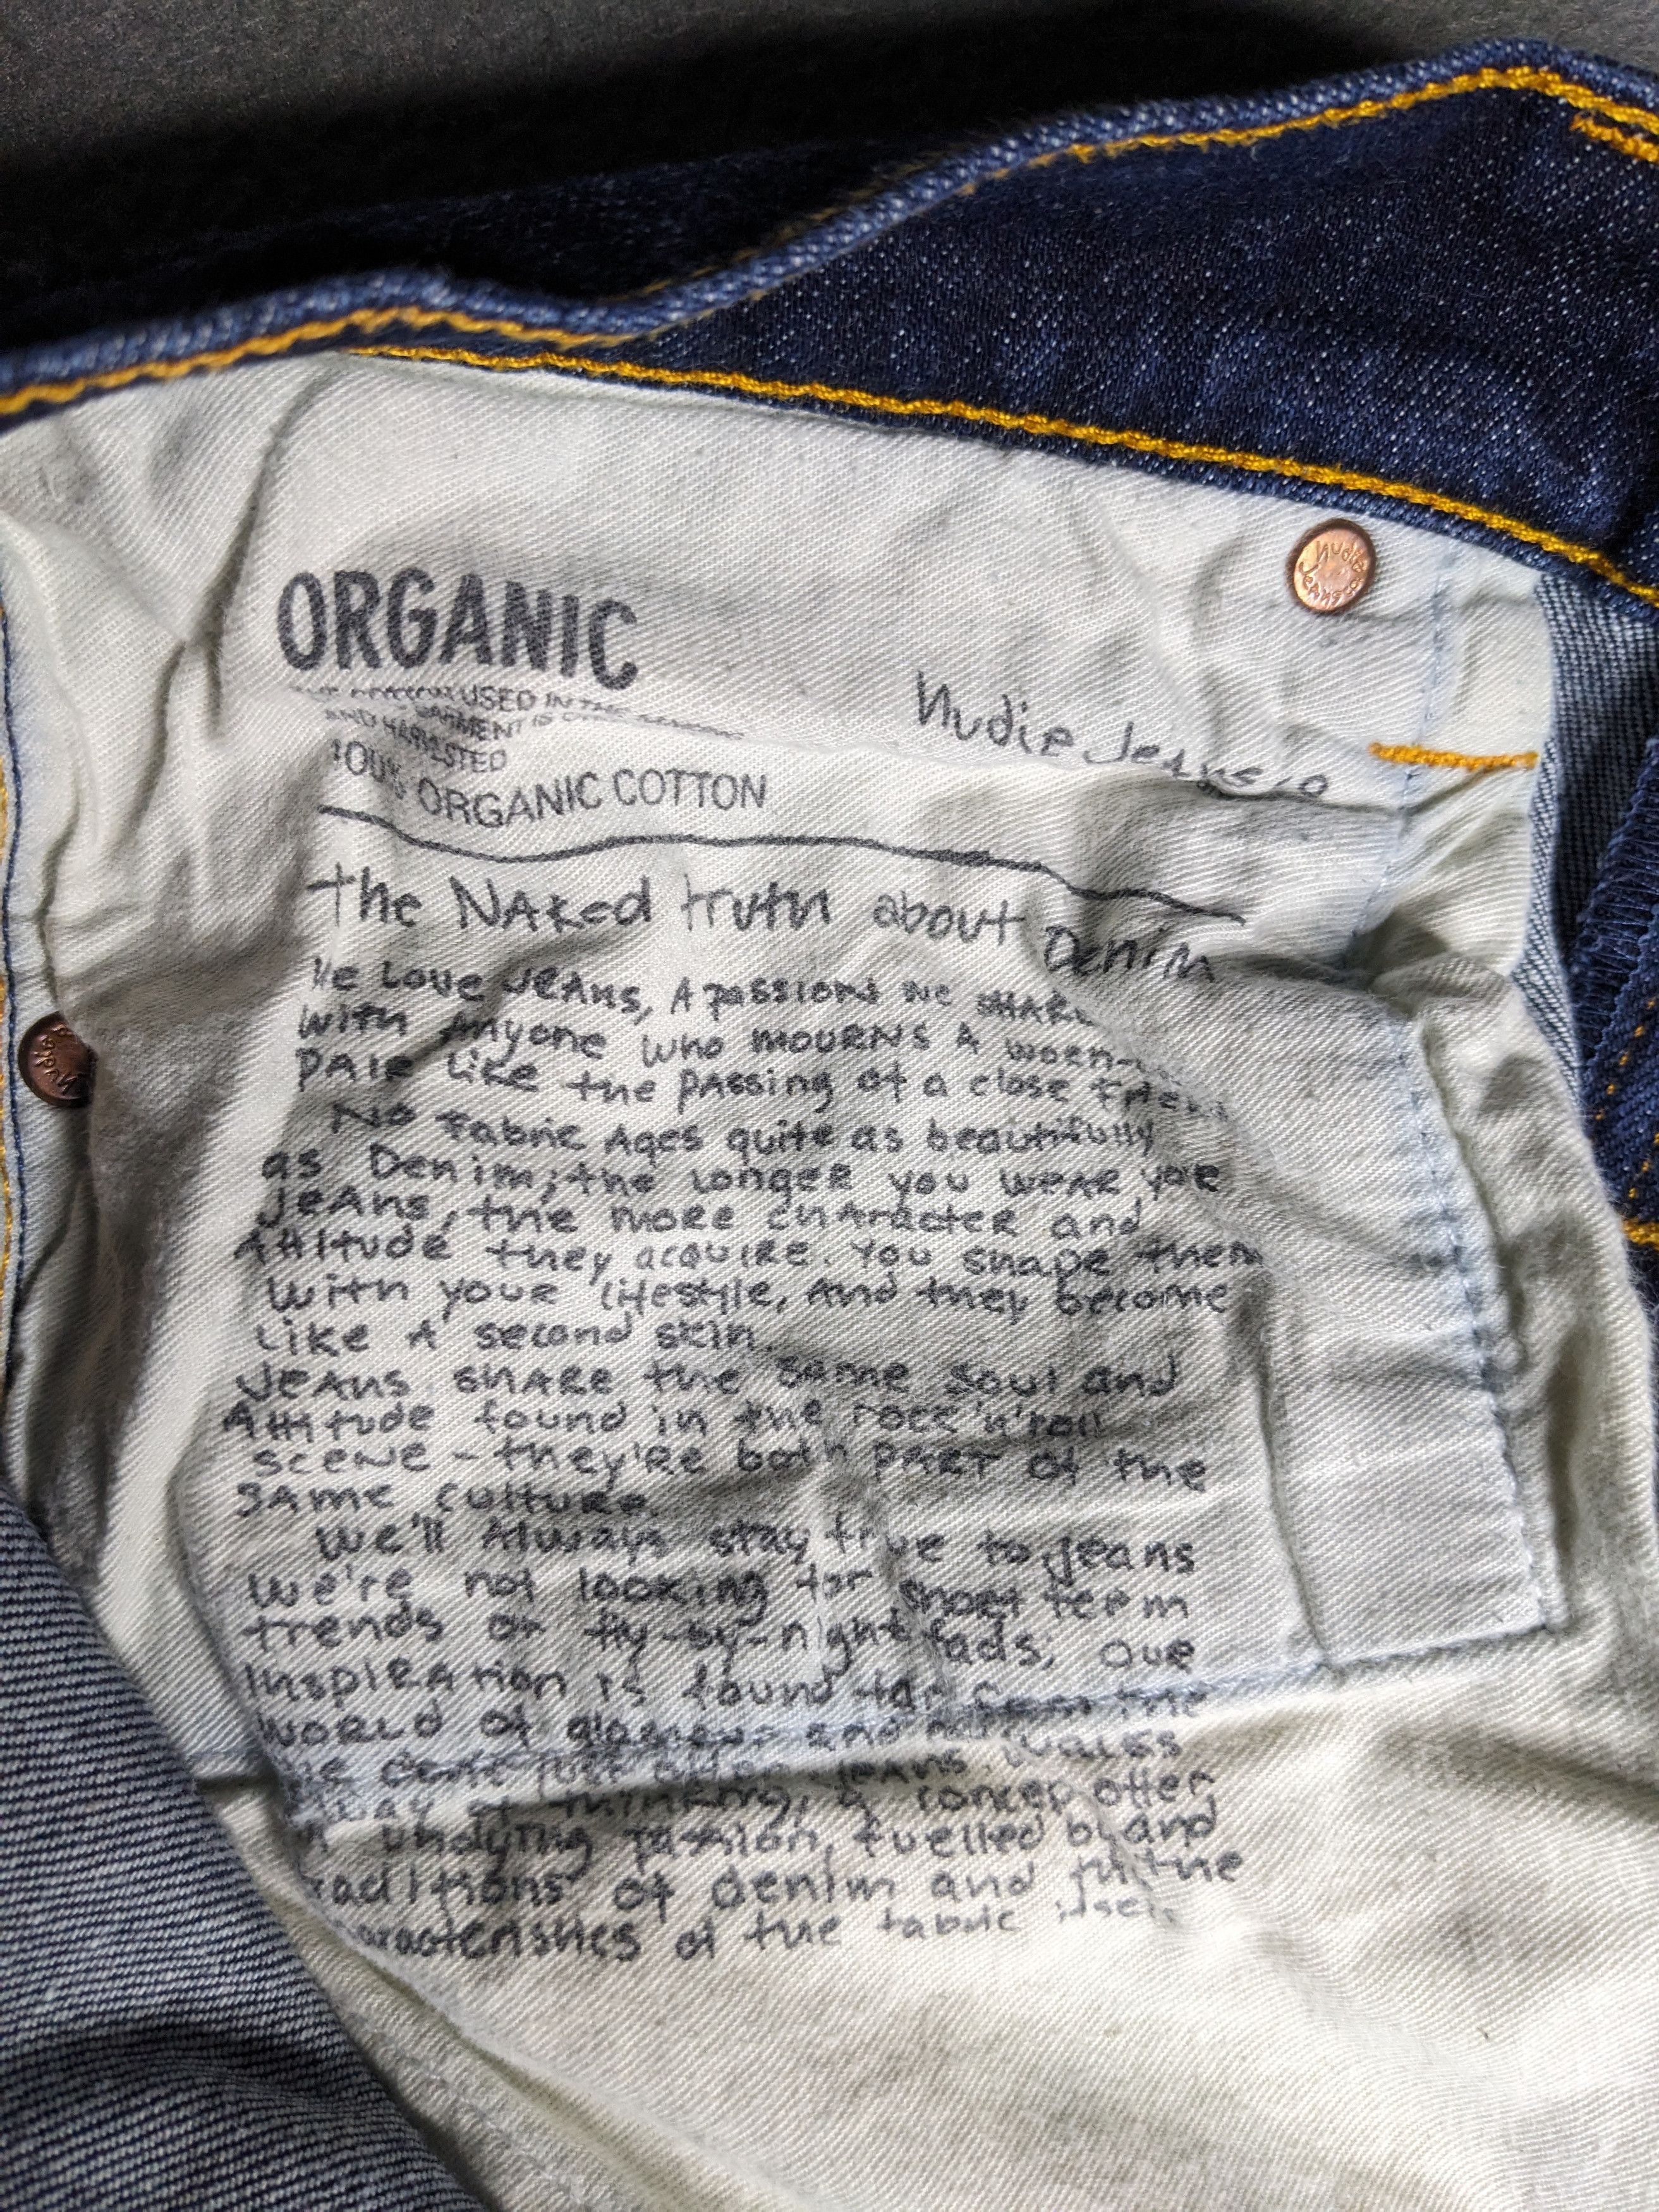 ORGANIC
USED IN THE
GARMENT IS
AND HARVESTED
100% ORGANIC COTTON
Nudie Jeans co
Nudie Jeans
Nudie
the NAKed truth about Denim
We LOVE JEANS, A PASSION WE SHARE
With Anyone who MOURNS A WORN-
PAIR LIKE the PASSing of a close Friend
No Fabric Ages quite as beautifully
as Denim; the LONGER you WEAR YOUR
JEANS, the MORE CHARACTER and
Attitude they ACQUIRE. You SHAPE them
With YOUR LIFEstyle, And they become
LIKE A second SKIN.
JEANS SHARE the Same Soul and
Attitude found in the rock'n'roll
SCENE - they'RE both PART of the
SAME CULTURE.
We'll Always stay true to jeans
We're not looking for Short term
trends or fly-by-night fads, OUR
INSPIRATION is found far from the
WORLD of glamorous and
We don't just offer JEANS.
way of thinking, a concept offer
undying passion, fuelled by and
traditions of denim and the
characteristics of the fabric itself